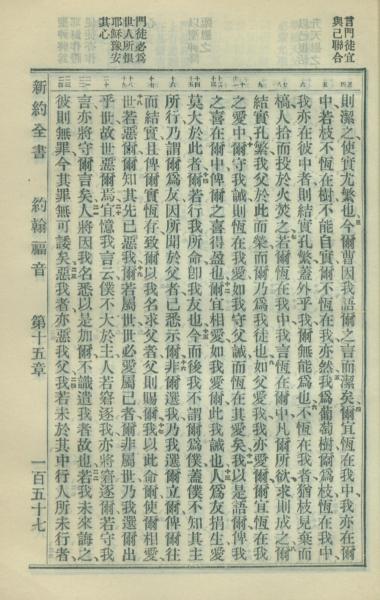 言門徒宜
與己聯合
則潔之使實尤繁也今爾曹因我語爾之言而潔矣爾宜在我中我亦在爾
中若枝不恆在樹不能自實爾不恆在我亦然我爲葡萄樹爾爲枝恆在我中
我亦在彼中者則結實孔繁蓋外乎我爾無能爲也不恆在我者猶枝見棄而
槁人拾而投於火焚之若爾恆在我中我言恆在爾中凡爾所欲求則成之爾
結實孔繁我父於此而榮而爾乃爲我徒也如父愛我我亦愛爾爾宜恆在我
之愛中爾守我誡則恆在我愛如我守父誡而恆在其愛矣我以是語爾俾我
之喜在爾中俾爾之喜得盈也爾宜相愛如我愛爾此我誡也人爲友捐生愛
莫大於此者爾若行我所命卽我友也今而後我不謂爾爲僕蓋僕不知其主
所行乃謂爾爲友因所聞於父者已悉示爾非爾選我乃我選爾立爾俾爾往
而結實且俾爾實恆存致爾以我名求父父則賜爾我以此命爾使爾相愛
門徒必爲
世人所恨
耶穌豫安
其心
世若惡爾爾知其先已惡我爾若屬世世必愛屬己者爾非屬世乃我選爾出
乎世故世惡爾焉宜憶我言云僕不大於主人若窘逐我亦將窘逐爾若守我
言亦將守爾言矣人將因我名悉以是加爾不識遣我者故也若我未來誨之
彼則無罪今其罪無可諉矣惡我者亦惡我父我若未於其中行人所未行者
新約全書 約翰福音 第十五章 一百五十七